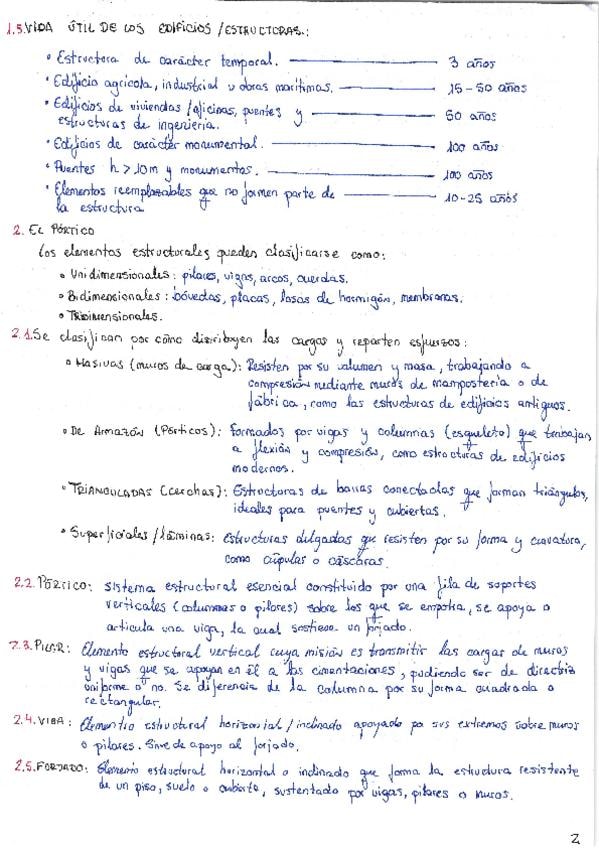 1.5. VIDA ÚTIL DE LOS EDIFICIOS / ESTRUCTURAS.:
• Estructura de carácter temporal. 3 años
• Edificio agrícola, industrial u obras marítimas. 15-50 años
• Edificios de viviendas / oficinas, puentes y 50 años
estructuras de ingeniería.
• Edificios de carácter monumental. 100 años
• Puentes h > 10m y monumentos. 100 años
• Elementos reemplazables que no formen parte de 10-25 años
la estructura
2. EL PÓRTICO
Los elementos estructurales pueden clasificarse como:
• Unidimensionales: pilares, vigas, arcos, cuerdas.
• Bidimensionales: bóvedas, placas, losas de hormigón, membranas.
• Tridimensionales.
2.1. Se clasifican por cómo distribuyen las cargas y reparten esfuerzos:
• Masivas (muros de carga): Resisten por su volumen y masa, trabajando a
compresión mediante muros de mampostería o de
fábrica, como las estructuras de edificios antiguos.
• De Armazón (Pórticos): Formados por vigas y columnas (esqueleto) que trabajan
a flexión y compresión, como estructuras de edificios
modernos.
• TRIANGULADAS (cerchas): Estructuras de barras conectadas que forman triángulos,
ideales para puentes y cubiertas.
• Superficiales / láminas: estructuras delgadas que resisten por su forma y curvatura,
como cúpulas o cáscaras.
2.2. PÓRTICO: sistema estructural esencial constituido por una fila de soportes
verticales (columnas o pilares) sobre los que se empotra, se apoya o
articula una viga, la cual sostiene un forjado.
2.3. PILAR: Elemento estructural vertical cuya misión es transmitir las cargas de muros
y vigas que se apoyan en él a las cimentaciones, pudiendo ser de directriz
uniforme o no. Se diferencia de la columna por su forma cuadrada o
rectangular.
2.4. VIGA: Elemento estructural horizontal / inclinado apoyado por sus extremos sobre muros
o pilares. Sirve de apoyo al forjado.
2.5. FORJADO: Elemento estructural horizontal o inclinado que forma la estructura resistente
de un piso, suelo o cubierta, sustentado por vigas, pilares o muros.
2